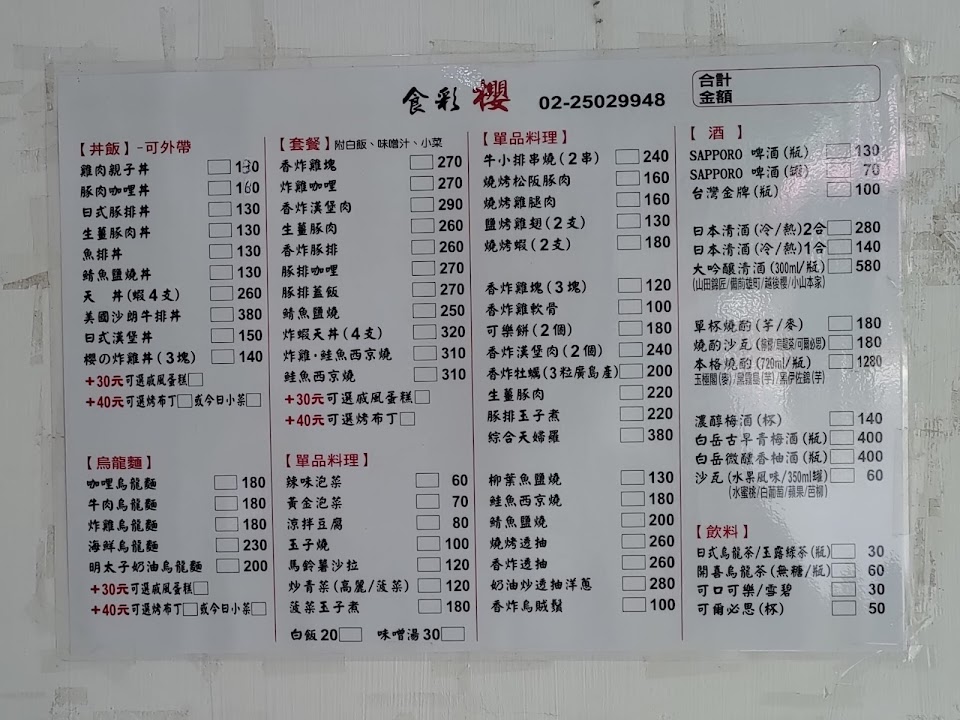 食彩 櫻 02-25029948
合計
金額
【丼飯】-可外帶
雞肉親子丼 130
豚肉咖哩丼 160
日式豚排丼 130
生薑豚肉丼 130
魚排丼 130
鯖魚鹽燒丼 130
天 丼(蝦4支) 260
美國沙朗牛排丼 380
日式漢堡丼 150
櫻の炸雞丼(3塊) 140
+30元可選戚風蛋糕
+40元可選烤布丁 或今日小菜
【烏龍麵】
咖哩烏龍麵 180
牛肉烏龍麵 180
炸雞烏龍麵 180
海鮮烏龍麵 230
明太子奶油烏龍麵 200
+30元可選戚風蛋糕
+40元可選烤布丁 或今日小菜
【套餐】附白飯、味噌汁、小菜
香炸雞塊 270
炸雞咖哩 270
香炸漢堡肉 290
生薑豚肉 260
香炸豚排 260
豚排咖哩 270
豚排蓋飯 270
鯖魚鹽燒 250
炸蝦天丼(4支) 320
炸雞·鮭魚西京燒 310
鮭魚西京燒 310
+30元可選戚風蛋糕
+40元可選烤布丁
【單品料理】
辣味泡菜 60
黃金泡菜 70
涼拌豆腐 80
玉子燒 100
馬鈴薯沙拉 120
炒青菜(高麗/菠菜) 120
菠菜玉子煮 180
白飯20 味噌湯30
【單品料理】
牛小排串燒(2串) 240
燒烤松阪豚肉 160
燒烤雞腿肉 160
鹽烤雞翅(2支) 130
燒烤蝦(2支) 180
香炸雞塊(3塊) 120
香炸雞軟骨 100
可樂餅(2個) 180
香炸漢堡肉(2個) 240
香炸牡蠣(3粒廣島產) 200
生薑豚肉 220
豚排玉子煮 220
綜合天婦羅 380
柳葉魚鹽燒 130
鮭魚西京燒 180
鯖魚鹽燒 200
燒烤透抽 260
香炸透抽 260
奶油炒透抽洋蔥 280
香炸烏賊鬚 100
【 酒 】
SAPPORO 啤酒(瓶) 130
SAPPORO 啤酒(罐) 70
台灣金牌(瓶) 100
日本清酒(冷/熱)2合 280
日本清酒(冷/熱)1合 140
大吟釀清酒(300ml/瓶) 580
(山田錦匠/備前雄町/越後櫻/小山本家)
單杯燒酌(芋/麥) 180
燒酌沙瓦(檸檬/烏龍茶/可爾必思) 180
本格燒酌(720ml/瓶) 1280
玉極閣(麥)/黑霧島(芋)/黑伊佐錦(芋)
濃醇梅酒(杯) 140
白岳古早青梅酒(瓶) 400
白岳微醺香柚酒(瓶) 400
沙瓦(水果風味/350ml罐) 60
(水蜜桃/白葡萄/蘋果/芭柳)
【飲料】
日式烏龍茶/玉露綠茶(瓶) 30
開喜烏龍茶(無糖/瓶) 60
可口可樂/雪碧 30
可爾必思(杯) 50